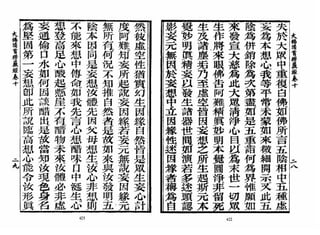 大佛頂首楞嚴經卷十
二八
失於大眾中重復白佛如佛所言五陰相中五種虛
妄為本想心我等平常未蒙如來微細開示又此五
陰為併銷除為次第盡如是五重詣何為界惟願如
來發宣大慈為此大眾清淨心目以為末世一切眾
生作將來眼佛告阿難精真妙明本覺圓淨非留死
生及諸塵垢乃至虛空皆因妄想之所生起斯元本
覺妙明精真妄以發生諸器世間如演若多迷頭認
影妄元無因於妄想中立因緣性迷因緣者稱為自
622
然彼虛空性猶實幻生因緣自然皆是眾生妄心計
度阿難知妄所起說妄因緣若妄元無說妄因緣元
無所有何況不知推自然者是故如來與汝發明五
陰本因同是妄想汝體先因父母想生汝心非想則
不能來想中傳命如我先言心想醋味口中涎生心
想登高足心酸起懸崖不有醋物未來汝體必非虛
妄通倫口水如何因談醋出是故當知汝現色身名
為堅固第一妄想即此所說臨高想心能令汝形真
大佛頂首楞嚴經卷十
二九
623